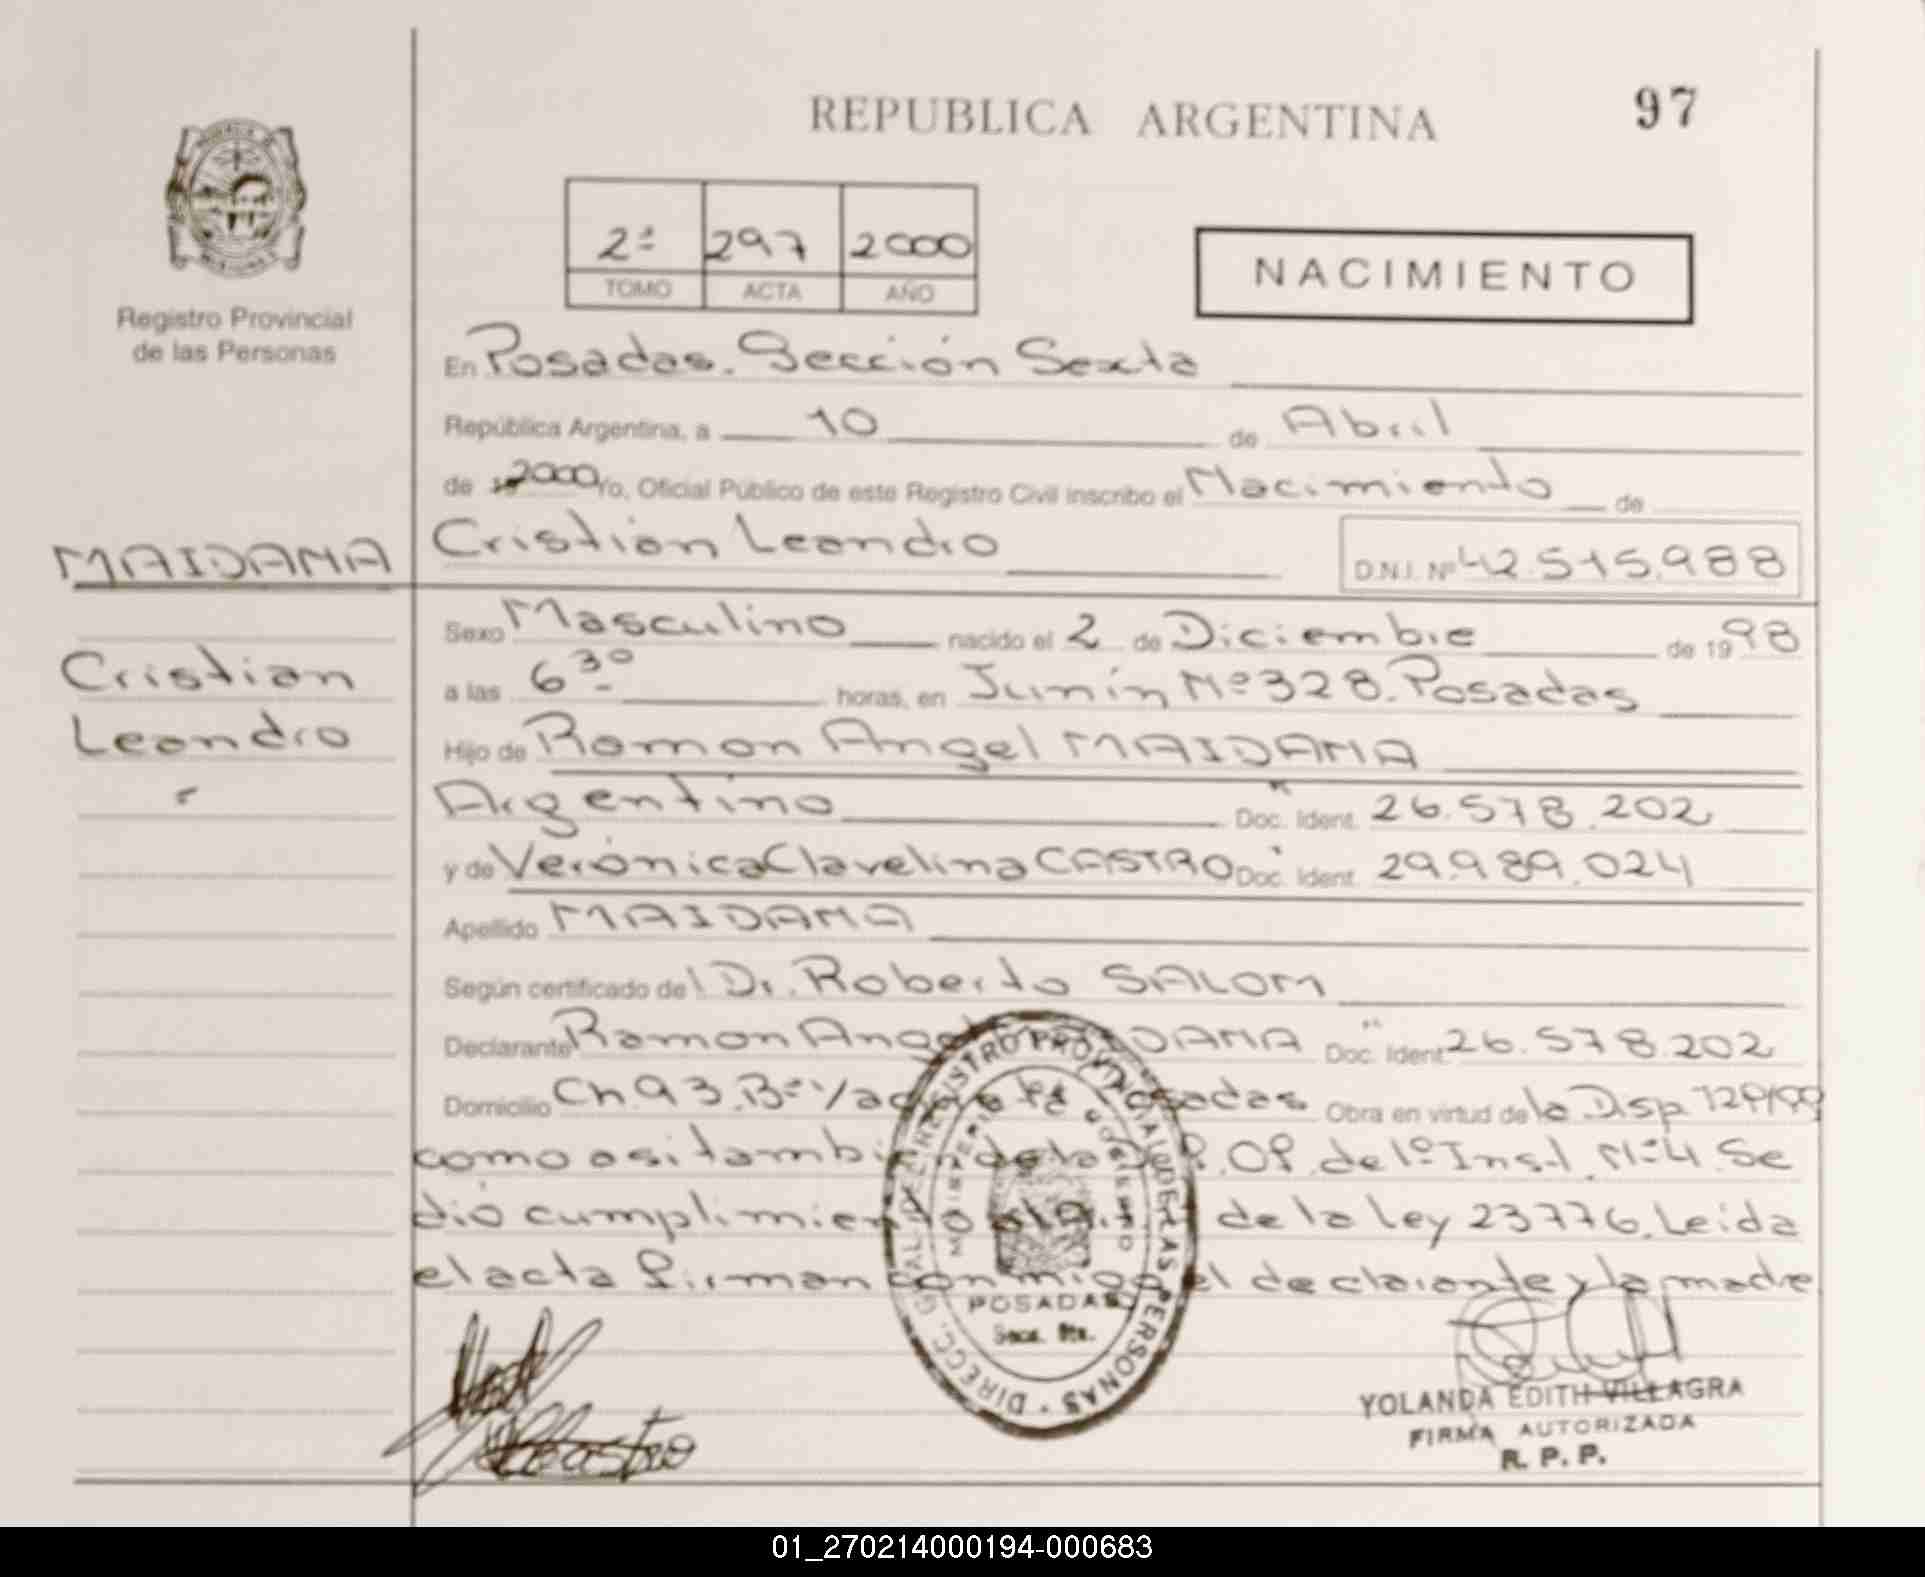 REPUBLICA ARGENTINA 97
2ª 297 2000
TOMO ACTA AÑO
NACIMIENTO
Registro Provincial
de las Personas
En Posadas. Sección Sexta
República Argentina, a 10 de Abril
de 2000 Yo, Oficial Público de este Registro Civil inscribo el Nacimiento de
MAIDANA
Cristian
Leandro
Cristian Leandro D.N.I. Nº 42.515.988
Sexo Masculino nacido el 2 de Diciembre de 1998
a las 6 30 horas, en Junín Nº 328. Posadas
Hijo de Ramon Angel MAIDANA
Argentino Doc. Ident. 26.578.202
y de Verónica Clavelina CASTRO Doc. Ident. 29.989.024
Apellido MAIDANA
Según certificado del Dr. Roberto SALOM
Declarante Ramon Angel MAIDANA Doc. Ident. 26.578.202
Domicilio Ch. 93. Bº Posadas Obra en virtud de la Disp
como asi tambien de la Of. de 1º Inst. Nº 4. Se
dió cumplimiento de la Ley 23776. Leida
el acta firman conmigo el declarante y la madre
DIRECC. GRAL. DEL REGISTRO PROVINCIAL DE LAS PERSONAS
MINISTERIO DE GOBIERNO
POSADAS
Castro
YOLANDA EDITH VILLAGRA
FIRMA AUTORIZADA
R. P. P.
01_270214000194-000683